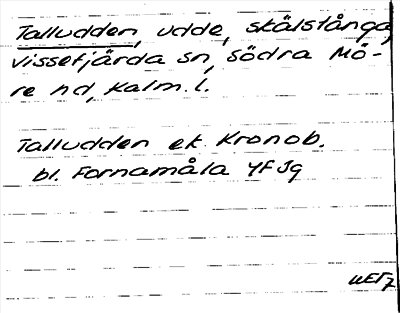 Talludden, udde, skälstånga,
Vissefjärda sn, Södra Mö-
re hd, Kalm. l.
Talludden ek. Kronob.
bl. Fornamåla 4F Jg